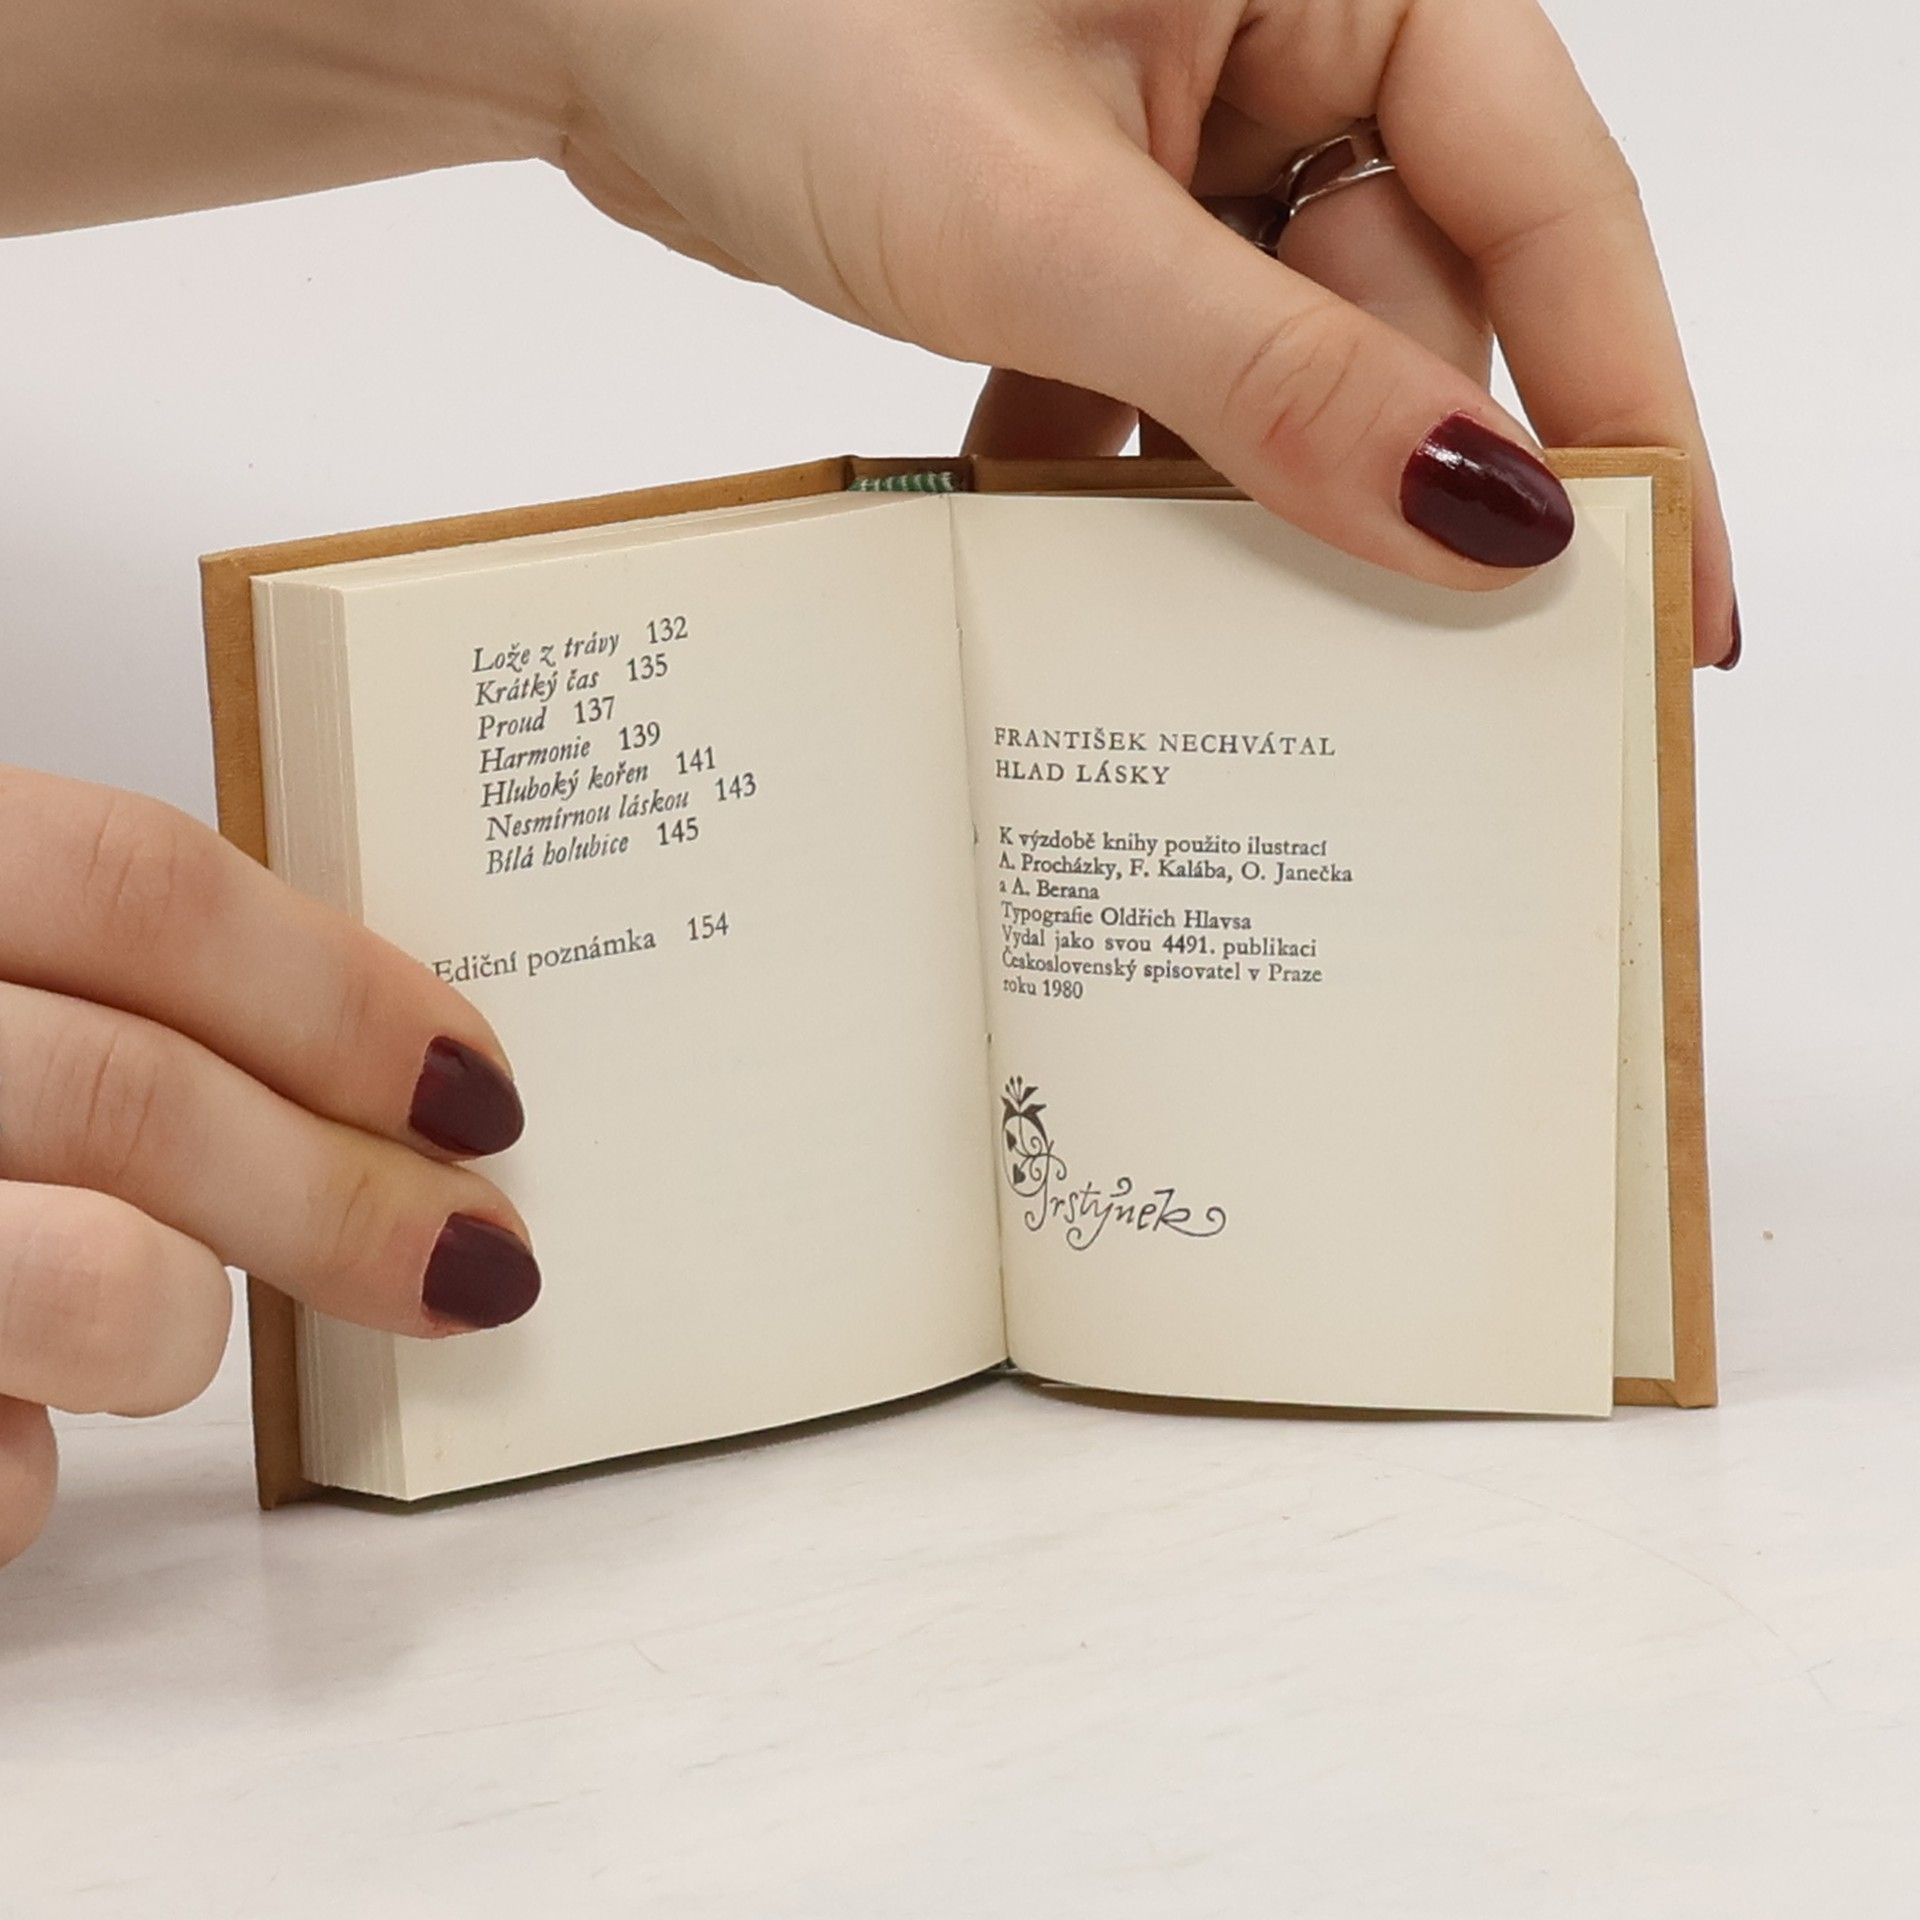 Lože z trávy 132
Krátký čas 135
Proud 137
Harmonie 139
Hluboký kořen 141
Nesmírnou láskou 143
Bílá holubice 145
Ediční poznámka 154
FRANTIŠEK NECHVÁTAL
HLAD LÁSKY
K výzdobě knihy použito ilustrací
A. Procházky, F. Kalába, O. Janečka
a A. Berana
Typografie Oldřich Hlavsa
Vydal jako svou 4491. publikaci
Československý spisovatel v Praze
roku 1980
Prstýnek